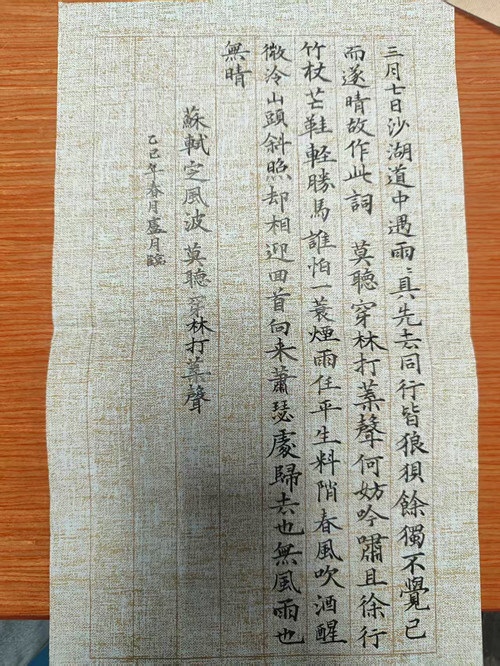 三月七日沙湖道中遇雨〻具先去同行皆狼狽餘獨不覺已
而遂晴故作此詞 莫聽穿林打葉聲何妨吟嘯且徐行
竹杖芒鞋輕勝馬誰怕一蓑煙雨任平生料陗春風吹酒醒
微冷山頭斜照却相迎回首向来蕭瑟處歸去也無風雨也
無晴
蘇軾定風波 莫聽穿林打葉聲
乙巳年春月